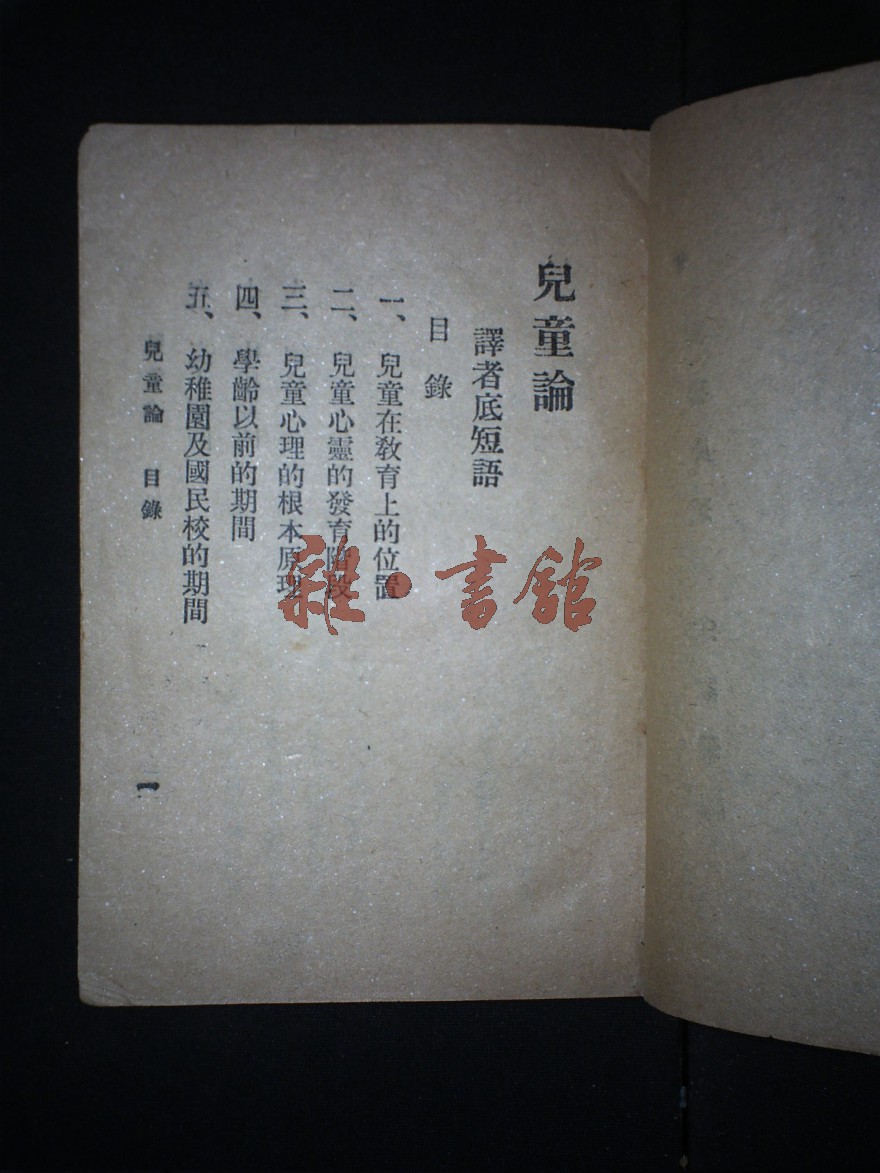 兒童論
譯者底短語
目錄
一、兒童在教育上的位置
二、兒童心靈的發育階段
三、兒童心理的根本原理
四、學齡以前的期間
五、幼稚園及國民校的期間
兒童論 目錄
一
雜·書館